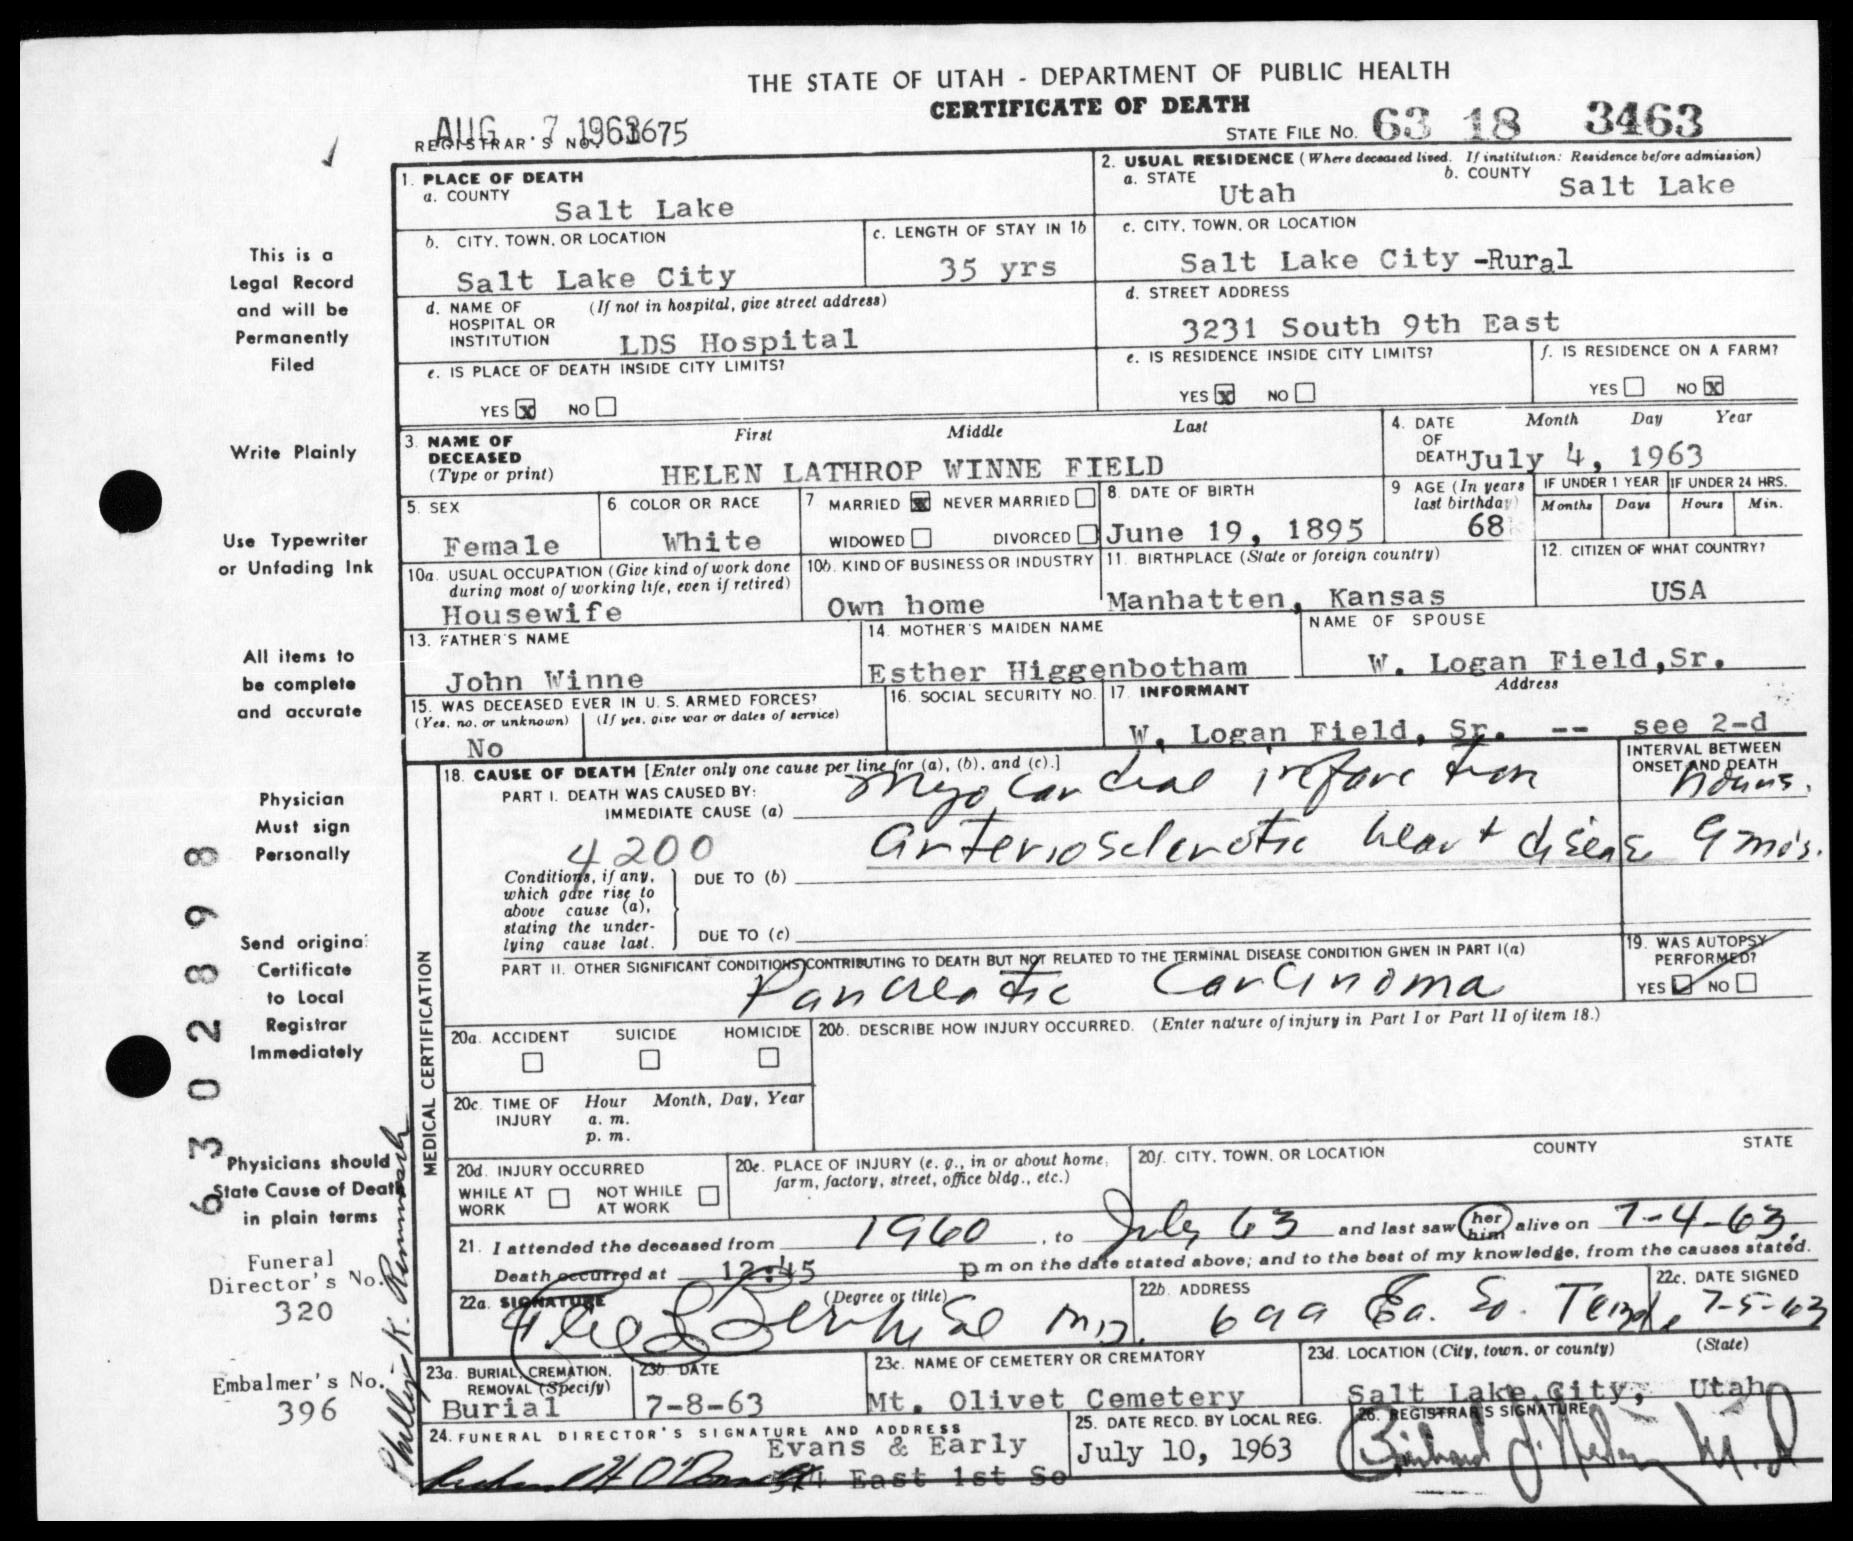 THE STATE OF UTAH - DEPARTMENT OF PUBLIC HEALTH
CERTIFICATE OF DEATH
AUG 7 1963
REGISTRAR'S NO. 1675
STATE FILE NO. 63 18 3463
1. PLACE OF DEATH
a. COUNTY
Salt Lake
2. USUAL RESIDENCE (Where deceased lived. If institution: Residence before admission)
a. STATE
Utah
b. COUNTY
Salt Lake
b. CITY, TOWN, OR LOCATION
Salt Lake City
c. LENGTH OF STAY IN 1b
35 yrs
c. CITY, TOWN, OR LOCATION
Salt Lake City -Rural
d. NAME OF HOSPITAL OR INSTITUTION
(If not in hospital, give street address)
LDS Hospital
d. STREET ADDRESS
3231 South 9th East
e. IS PLACE OF DEATH INSIDE CITY LIMITS?
YES X NO
e. IS RESIDENCE INSIDE CITY LIMITS?
YES X NO
f. IS RESIDENCE ON A FARM?
YES NO X
3. NAME OF DECEASED (Type or print)
First Middle Last
HELEN LATHROP WINNE FIELD
4. DATE OF DEATH
Month Day Year
July 4, 1963
5. SEX
Female
6. COLOR OR RACE
White
7 MARRIED X NEVER MARRIED
WIDOWED DIVORCED
8. DATE OF BIRTH
June 19, 1895
9 AGE (In years last birthday)
68
IF UNDER 1 YEAR
Months Days
IF UNDER 24 HRS.
Hours Min.
10a. USUAL OCCUPATION (Give kind of work done during most of working life, even if retired)
Housewife
10b. KIND OF BUSINESS OR INDUSTRY
Own home
11. BIRTHPLACE (State or foreign country)
Manhatten, Kansas
12. CITIZEN OF WHAT COUNTRY?
USA
13. FATHER'S NAME
John Winne
14. MOTHER'S MAIDEN NAME
Esther Higgenbotham
NAME OF SPOUSE
W. Logan Field,Sr.
15. WAS DECEASED EVER IN U. S. ARMED FORCES?
(Yes, no, or unknown) (If yes, give war or dates of service)
No
16. SOCIAL SECURITY NO.
17. INFORMANT
Address
W. Logan Field, Sr. -- see 2-d
MEDICAL CERTIFICATION
18. CAUSE OF DEATH [Enter only one cause per line for (a), (b), and (c).]
INTERVAL BETWEEN ONSET AND DEATH
PART I. DEATH WAS CAUSED BY:
IMMEDIATE CAUSE (a)
Myocardial infarction hours.
4200
Arteriosclerotic heart disease 9 mos.
Conditions, if any, which gave rise to above cause (a), stating the underlying cause last.
DUE TO (b)
DUE TO (c)
PART II. OTHER SIGNIFICANT CONDITIONS CONTRIBUTING TO DEATH BUT NOT RELATED TO THE TERMINAL DISEASE CONDITION GIVEN IN PART I(a)
Pancreatic Carcinoma
19. WAS AUTOPSY PERFORMED?
YES NO
20a. ACCIDENT SUICIDE HOMICIDE
20b. DESCRIBE HOW INJURY OCCURRED. (Enter nature of injury in Part I or Part II of item 18.)
20c. TIME OF INJURY
Hour Month, Day, Year
a. m.
p. m.
20d. INJURY OCCURRED
WHILE AT WORK NOT WHILE AT WORK
20e. PLACE OF INJURY (e. g., in or about home, farm, factory, street, office bldg., etc.)
20f. CITY, TOWN, OR LOCATION COUNTY STATE
21. I attended the deceased from 1960, to July 63 and last saw her him alive on 7-4-63.
Death occurred at 12:45 p m on the date stated above; and to the best of my knowledge, from the causes stated.
22a. SIGNATURE (Degree or title)
M.D.
22b. ADDRESS
699 Ea. So. Temple
22c. DATE SIGNED
7-5-63
23a. BURIAL, CREMATION, REMOVAL (Specify)
Burial
23b. DATE
7-8-63
23c. NAME OF CEMETERY OR CREMATORY
Mt. Olivet Cemetery
23d. LOCATION (City, town, or county) (State)
Salt Lake City, Utah
24. FUNERAL DIRECTOR'S SIGNATURE AND ADDRESS
Evans & Early
East 1st So
25. DATE RECD. BY LOCAL REG.
July 10, 1963
26. REGISTRAR'S SIGNATURE
This is a
Legal Record
and will be
Permanently
Filed
Write Plainly
Use Typewriter
or Unfading Ink
All items to
be complete
and accurate
Physician
Must sign
Personally
Send original
Certificate
to Local
Registrar
Immediately
Physicians should
State Cause of Death
in plain terms
Funeral
Director's No.
320
Embalmer's No.
396
63028988